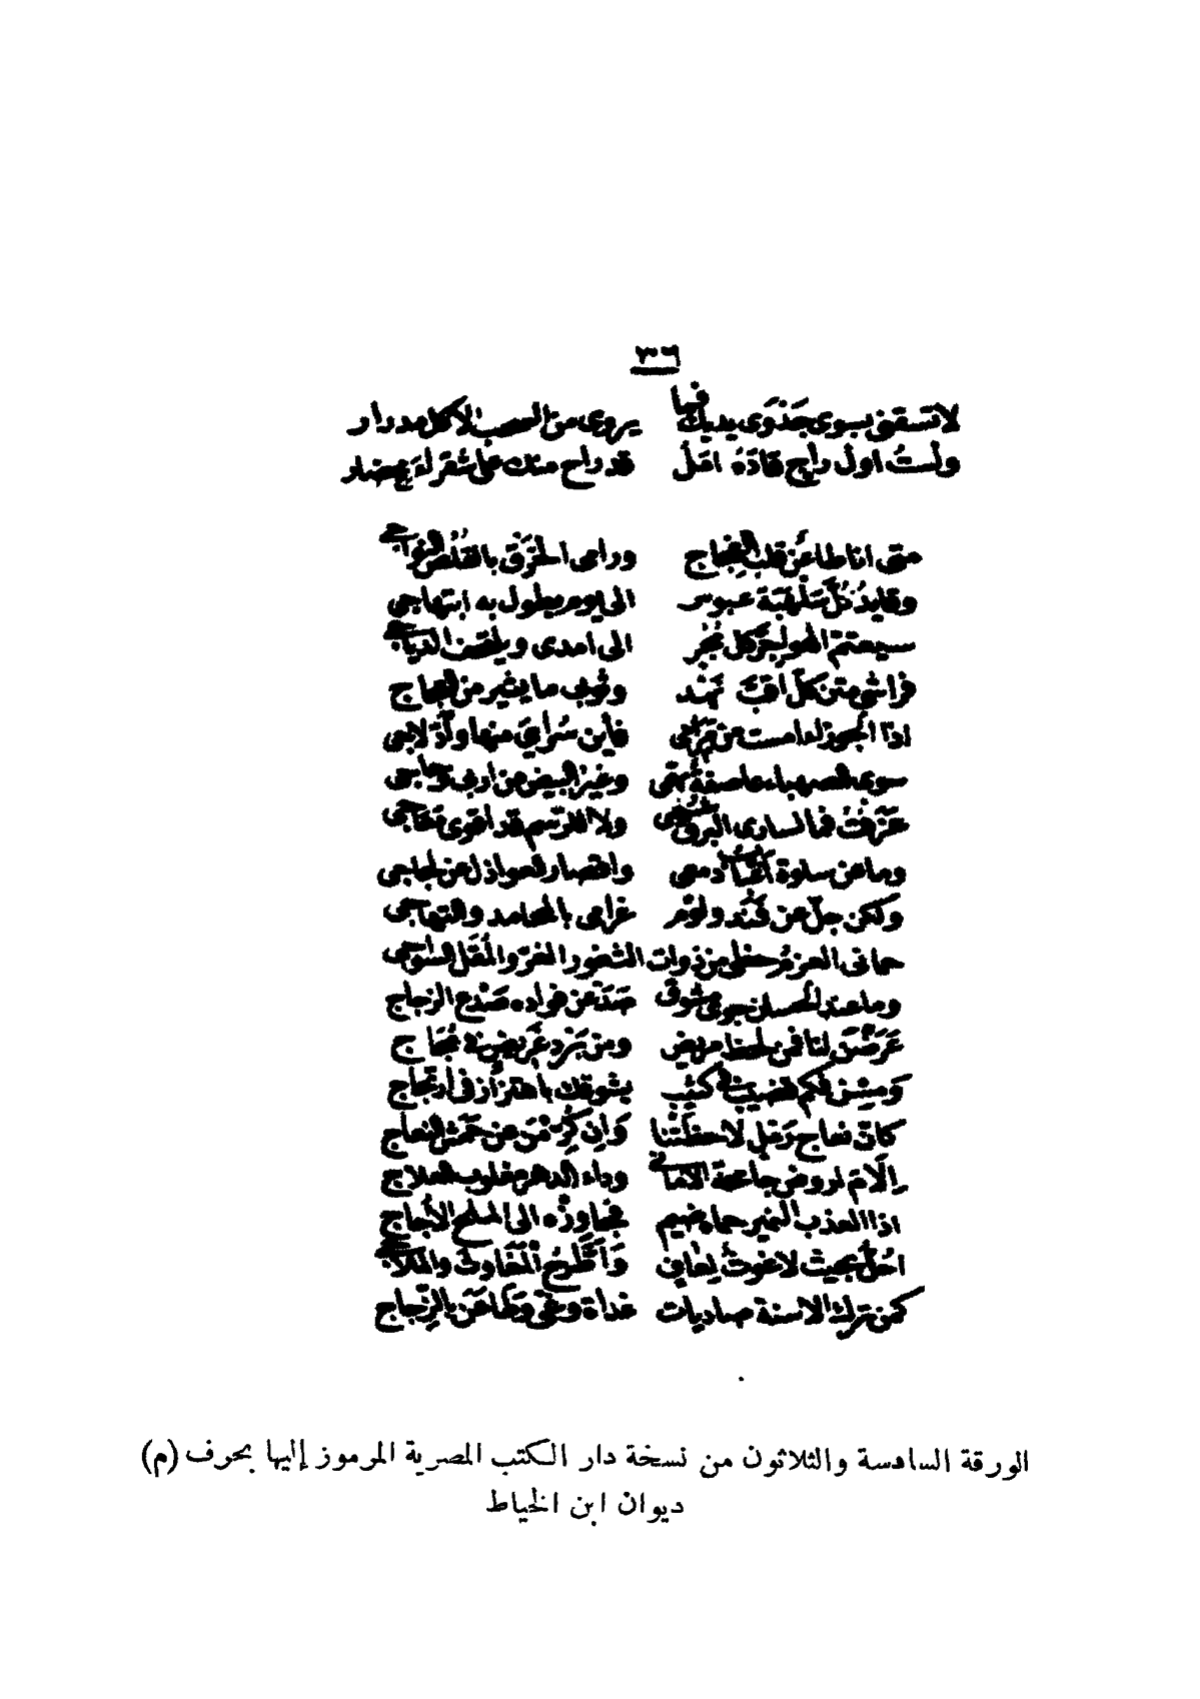 ٣٦
لا تسقنى بسوى جَدْوَى يديك فما يروى من السحب الاكل مدرار
ولستُ اول راج قادَهُ امَلٌ قد راح منك على شقراء مضمار
متى انا طاعن قلب الفجاج ورامى الخَرْق بالقُلُص النواجى
وقايدُ كُلّ سَلْهَبَة عبوس الى يوم يطول به ابتهاجى
سيعتم الهواجر كل مجر الى امدى ويلتحف الدياجى
فراشى متن كلّ اقبّ نهْد وثوبى ما يثير من العجاج
اذا لجوزا امست من فأين سُراىَ منها وادّلاجى
سوى الصهباء عاصفة بهمّى وغير البيض من اربى وحاجى
عَزَفْتُ فما لسارى البرق ولا للرسم قد اقوى معاجى
وما عن سلوة دمعى واقصار العواذل عن لجاجى
ولكن جلّ عن فَنَد ولوم غرامى بالمحامد والتهاجى
حمانى العزم حظى من ذوات الثغور الغرّ والمُقَل السواجى
وما عند الحسان جوى مشوق صَدَعن فواده صَدْع الزجاج
عَرَضْنَ لنا فمن لحظ مريض ومن بَرْد غَريض مُجَاج
ومِسْنَ فكم قضيب كثيب يشوقك باهتزاز فى ارتجاج
كانّ نعاج رَمل لاحظتنا وان كرُمْنَ عن حَمش النعاج
إلامَ اروض جامحة الامانى وداء الدهر مغلوب العلاج
اذا العذب النمير حماه ضيم فجاوزْه الى الملح الأجاج
احُلُّ بحيث لا غوثٌ لِعَافٍ وَأطَّرِحُ المَغَاوث والملاجى
كمن ترك الاسنة صاديات غداة وغى وطاعَنَ بالزّجاج
الورقة السادسة والثلاثون من نسخة دار الكتب المصرية المرموز إليها بحرف (م)
ديوان ابن الخياط